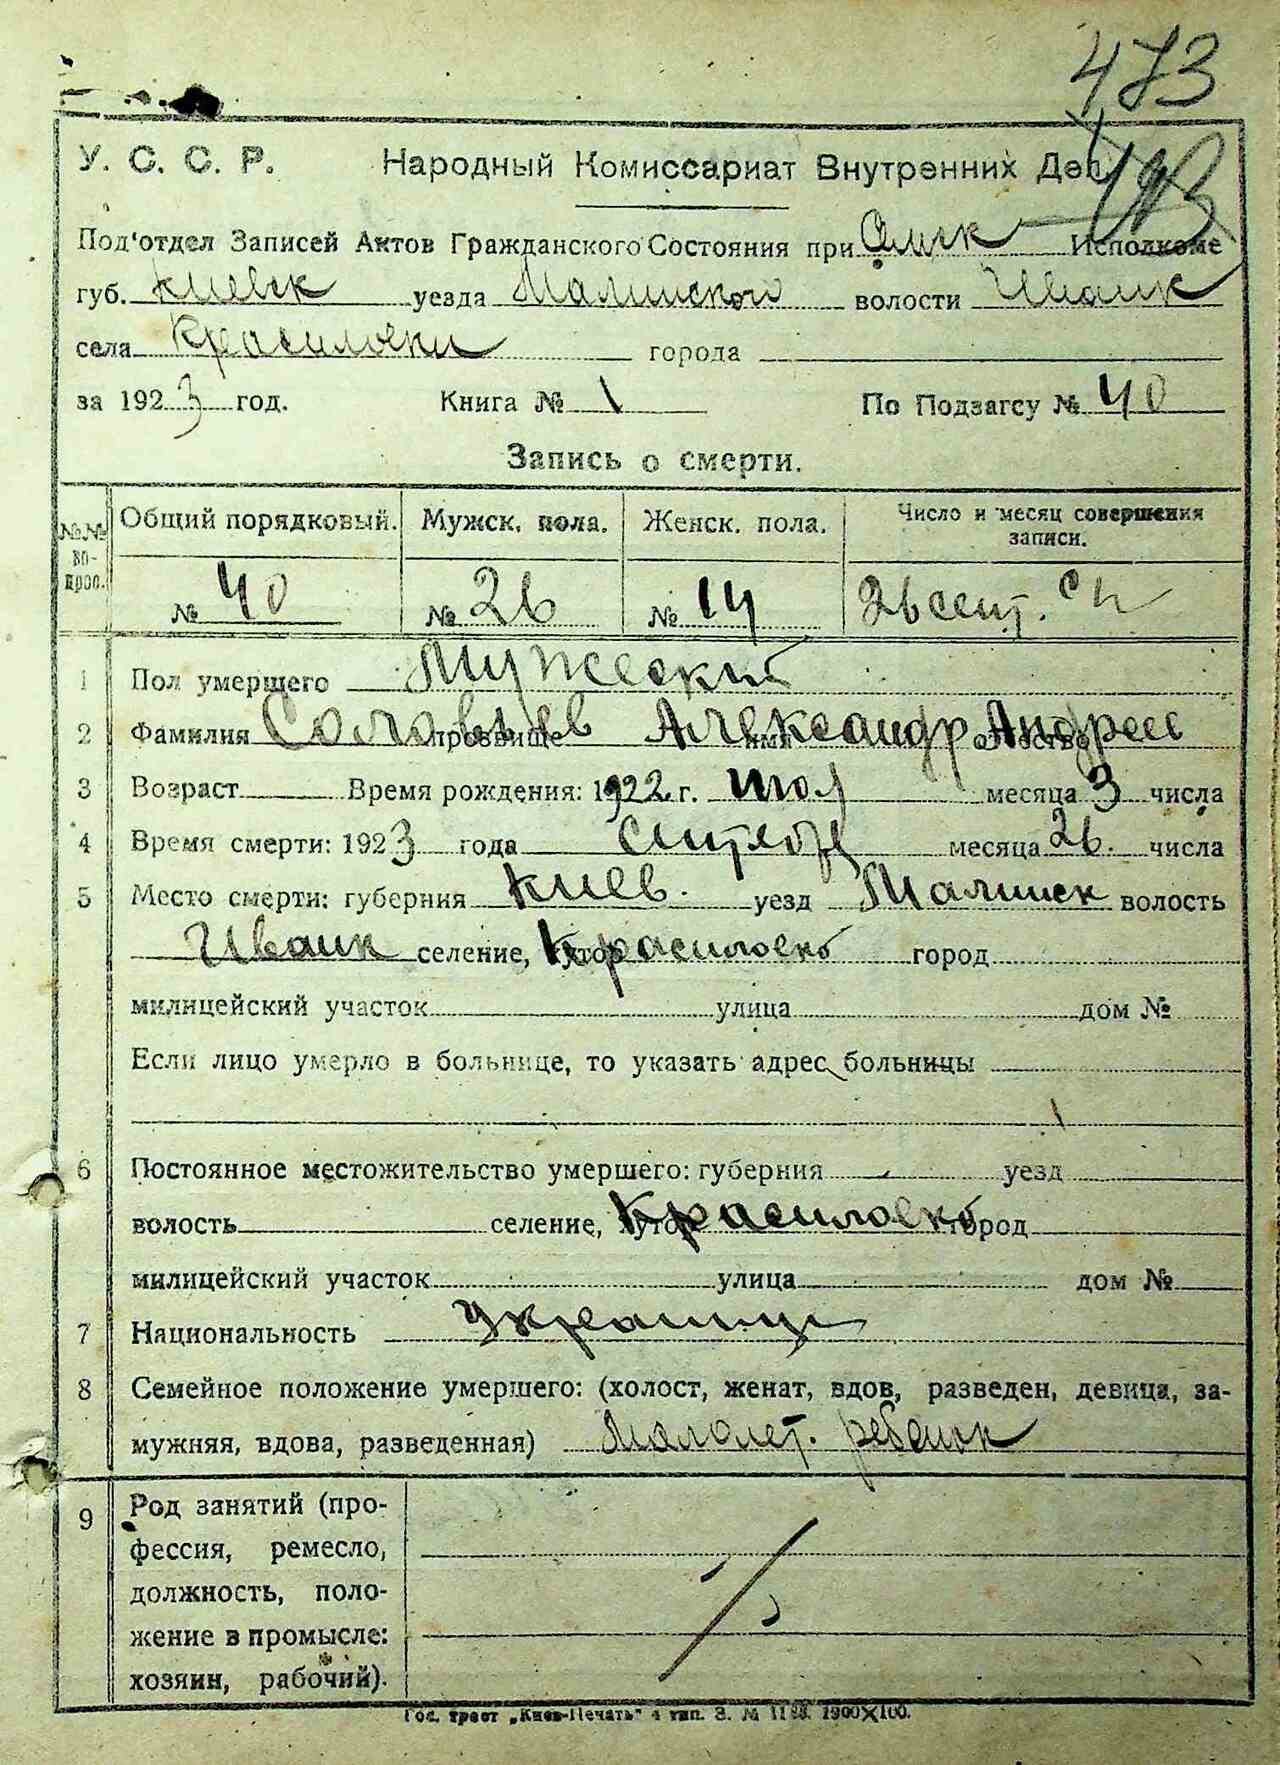 473
У. С. С. Р. Народный Комиссариат Внутренних Дел
Под'отдел Записей Актов Гражданского Состояния при Исполкоме
губ. Киевск уезда Малинского волости Иванк
села Красиловки города
за 1923 год. Книга № 1 По Подзагсу № 40
Запись о смерти.
№№ вопрос. Общий порядковый. Мужск. пола. Женск. пола. Число и месяц совершения записи.
№ 40 № 26 № 14 26 сент.
1 Пол умершего Мужеский
2 Фамилия Соловьев прозвище Александр имя Андреев отчество
3 Возраст Время рождения: 1922 г. июл месяца 3 числа
4 Время смерти: 1923 года месяца 26. числа
5 Место смерти: губерния Киев. уезд Малинск волость
Иванк селение, хутор Красиловка город
милицейский участок улица дом №
Если лицо умерло в больнице, то указать адрес больницы
6 Постоянное местожительство умершего: губерния уезд
волость селение, хутор Красиловка город
милицейский участок улица дом №
7 Национальность украинц
8 Семейное положение умершего: (холост, женат, вдов, разведен, девица, за-
мужняя, вдова, разведенная) Малолет. ребенок
9 Род занятий (про-
фессия, ремесло,
должность, поло-
жение в промысле:
хозяин, рабочий).
Гос. трест „Киев-Печать" 4 тип. З. № 1900×100.